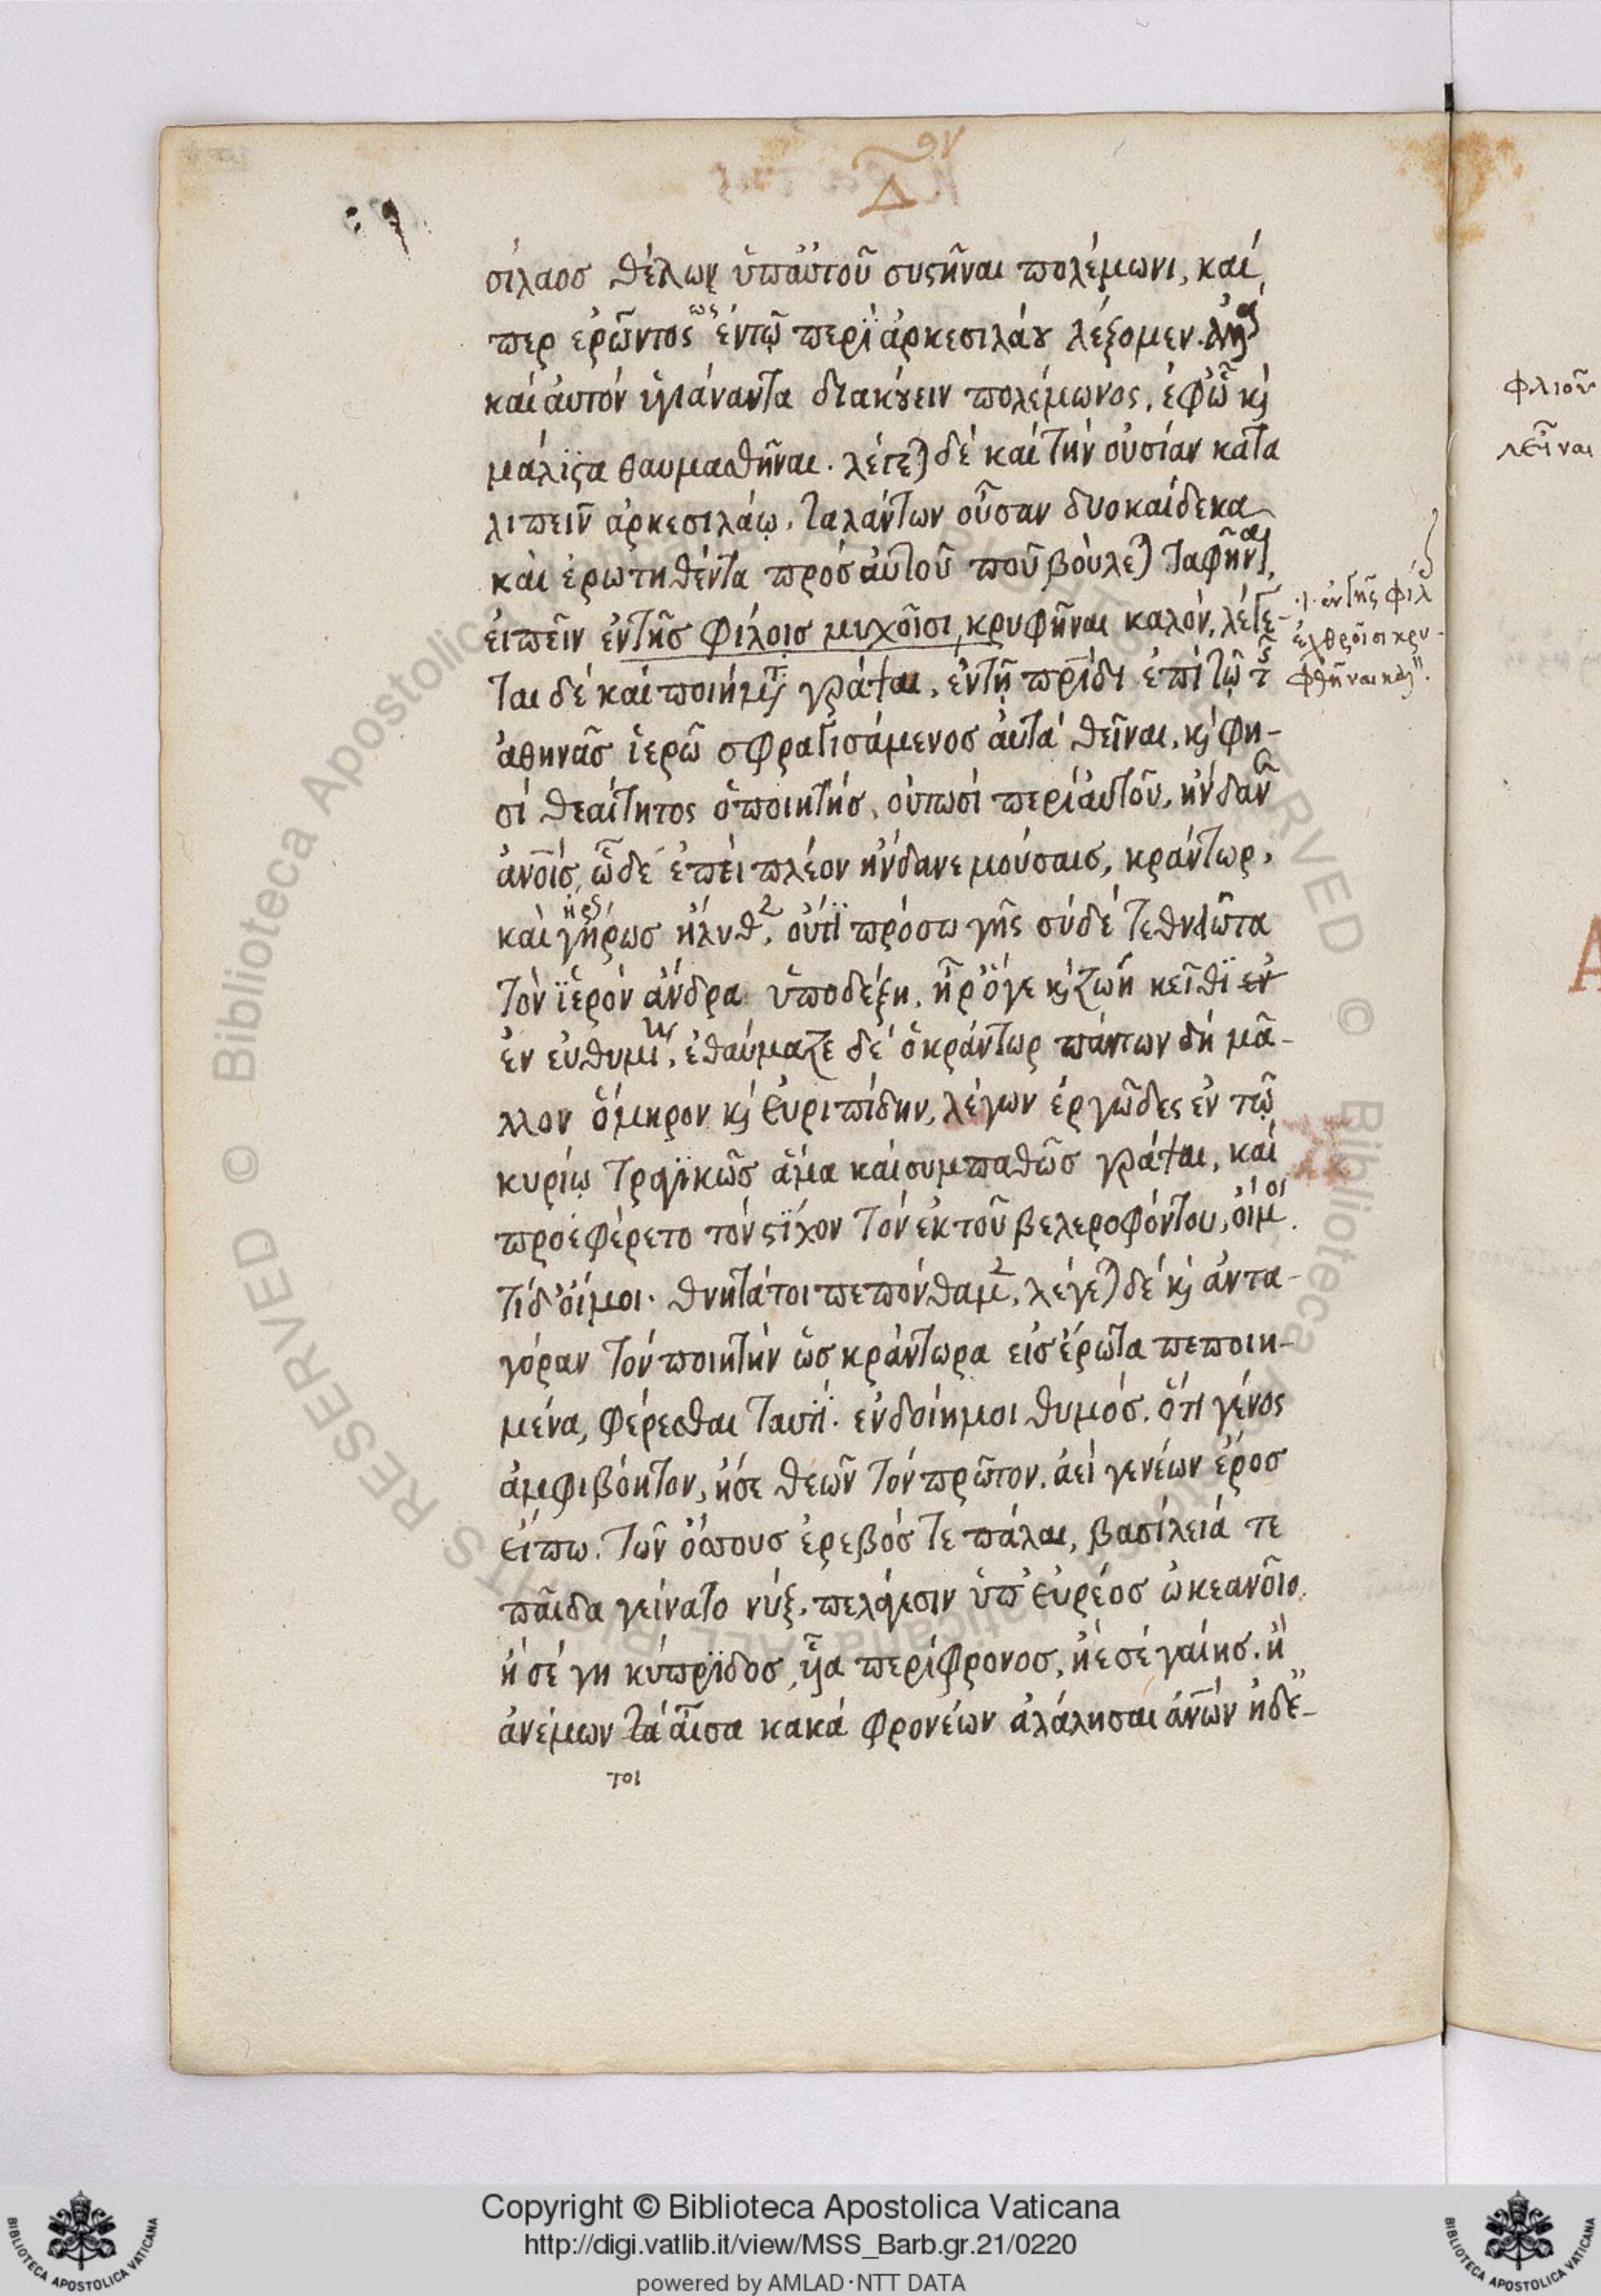 Δ ον
σίλαος θέλων ὑπ' αὐτοῦ συστῆναι πολέμωνι, καί
περ ἐρῶντος ὡς ἐν τῷ περὶ ἀρκεσιλάου λέξομεν. ἀλλὰ
καὶ αὐτόν ὑγιάναντα διακούειν πολέμωνος, ἐφ' ᾧ κ(αὶ)
μάλϊστα θαυμασθῆναι. λέγεται δέ καί τήν οὐσίαν κατα
λιπεῖν ἀρκεσιλάῳ, ταλάντων οὖσαν δυοκαίδεκα
καὶ ἐρωτηθέντα πρός αὐτοῦ ποῦ βούλεται ταφῆναι,
εἰπεῖν ἐν γῆς φίλοισ μυχοῖσι κρυφῆναι καλόν, λέγε-
ται δέ καί ποιήματα γράψαι, ἐν τῇ πρίδι ἐπί τῷ τῆς
ἀθηνᾶσ ἱερῶ σφραγισάμενοσ αὐτά θεῖναι, κ(αί) φη-
σί θεαίτητος ὁ ποιητήσ, οὑτωσί περί αὐτοῦ, ἥνδανεν
ἀνοις, ὧδέ ἐπεί πλέον ἥνδανε μούσαισ, κράντωρ,
καὶ γήρωσ ἤλυθεν, οὔτϊ πρόσω γῆς σύ δέ τεθνιῶτα
τὸν ϊἑρόν ἄνδρα ὑποδέξη, ἦ ρ' ὅγε κ(αί) ζωή κεῖθϊ ἐν
ἐν εὐθυμι, ἐθαύμαζε δέ ὁ κράντωρ πάντων δή μᾶ-
λλον ὅμηρον κ(αί) Εὐριπίδην, λέγων ἐργῶδες ἐν τῷ
κυρίῳ τραγϊκῶσ ἅμα καί συμπαθῶσ γράψαι, καί
προεφέρετο τόν στϊχον τόν ἐκ τοῦ βελεροφόντου, οἴμοι
τί δ' οἴμοι. θνητά τοι πεπόνθαμεν, λέγεται δέ κ(αί) ἀντα-
γόραν τόν ποιητήν ὡσ κράντωρα εἰσ ἔρωτα πεποιη-
μένα, φέρεσθαι ταυτϊ. ἐν δοίη μοι θυμόσ. ὅτι γένος
ἀμφιβόητον, ἤ σε θεῶν τόν πρῶτον. ἀεί γενέων ἔροσ
εἴπω. τῶν ὅσσουσ ἐρεβόσ τε πάλαι, βασίλειά τε
παῖδα γείνατο νύξ. πελάγεσιν ὑπ' Εὐρέοσ ὠκεανοῖο.
ἤ σέ γη κύπρϊδοσ, ὗα περίφρονοσ, ἠέ σέ γαίησ. ἤ
ἀνέμων τά αἶσα κακά φρονέων ἀλάλησαι ἀνῶν ἠδέ-
τοι
ἐν γῆς φίλ
ἐλθροῖσι κρυ-
φθῆναι καλ
φλιοῦν
λεῖναι
Copyright © Biblioteca Apostolica Vaticana
http://digi.vatlib.it/view/MSS_Barb.gr.21/0220
powered by AMLAD·NTT DATA
BIBLIOTECA APOSTOLICA VATICANA
BIBLIOTECA APOSTOLICA VATICANA
© Biblioteca Apostolica Vaticana ALL RIGHTS RESERVED